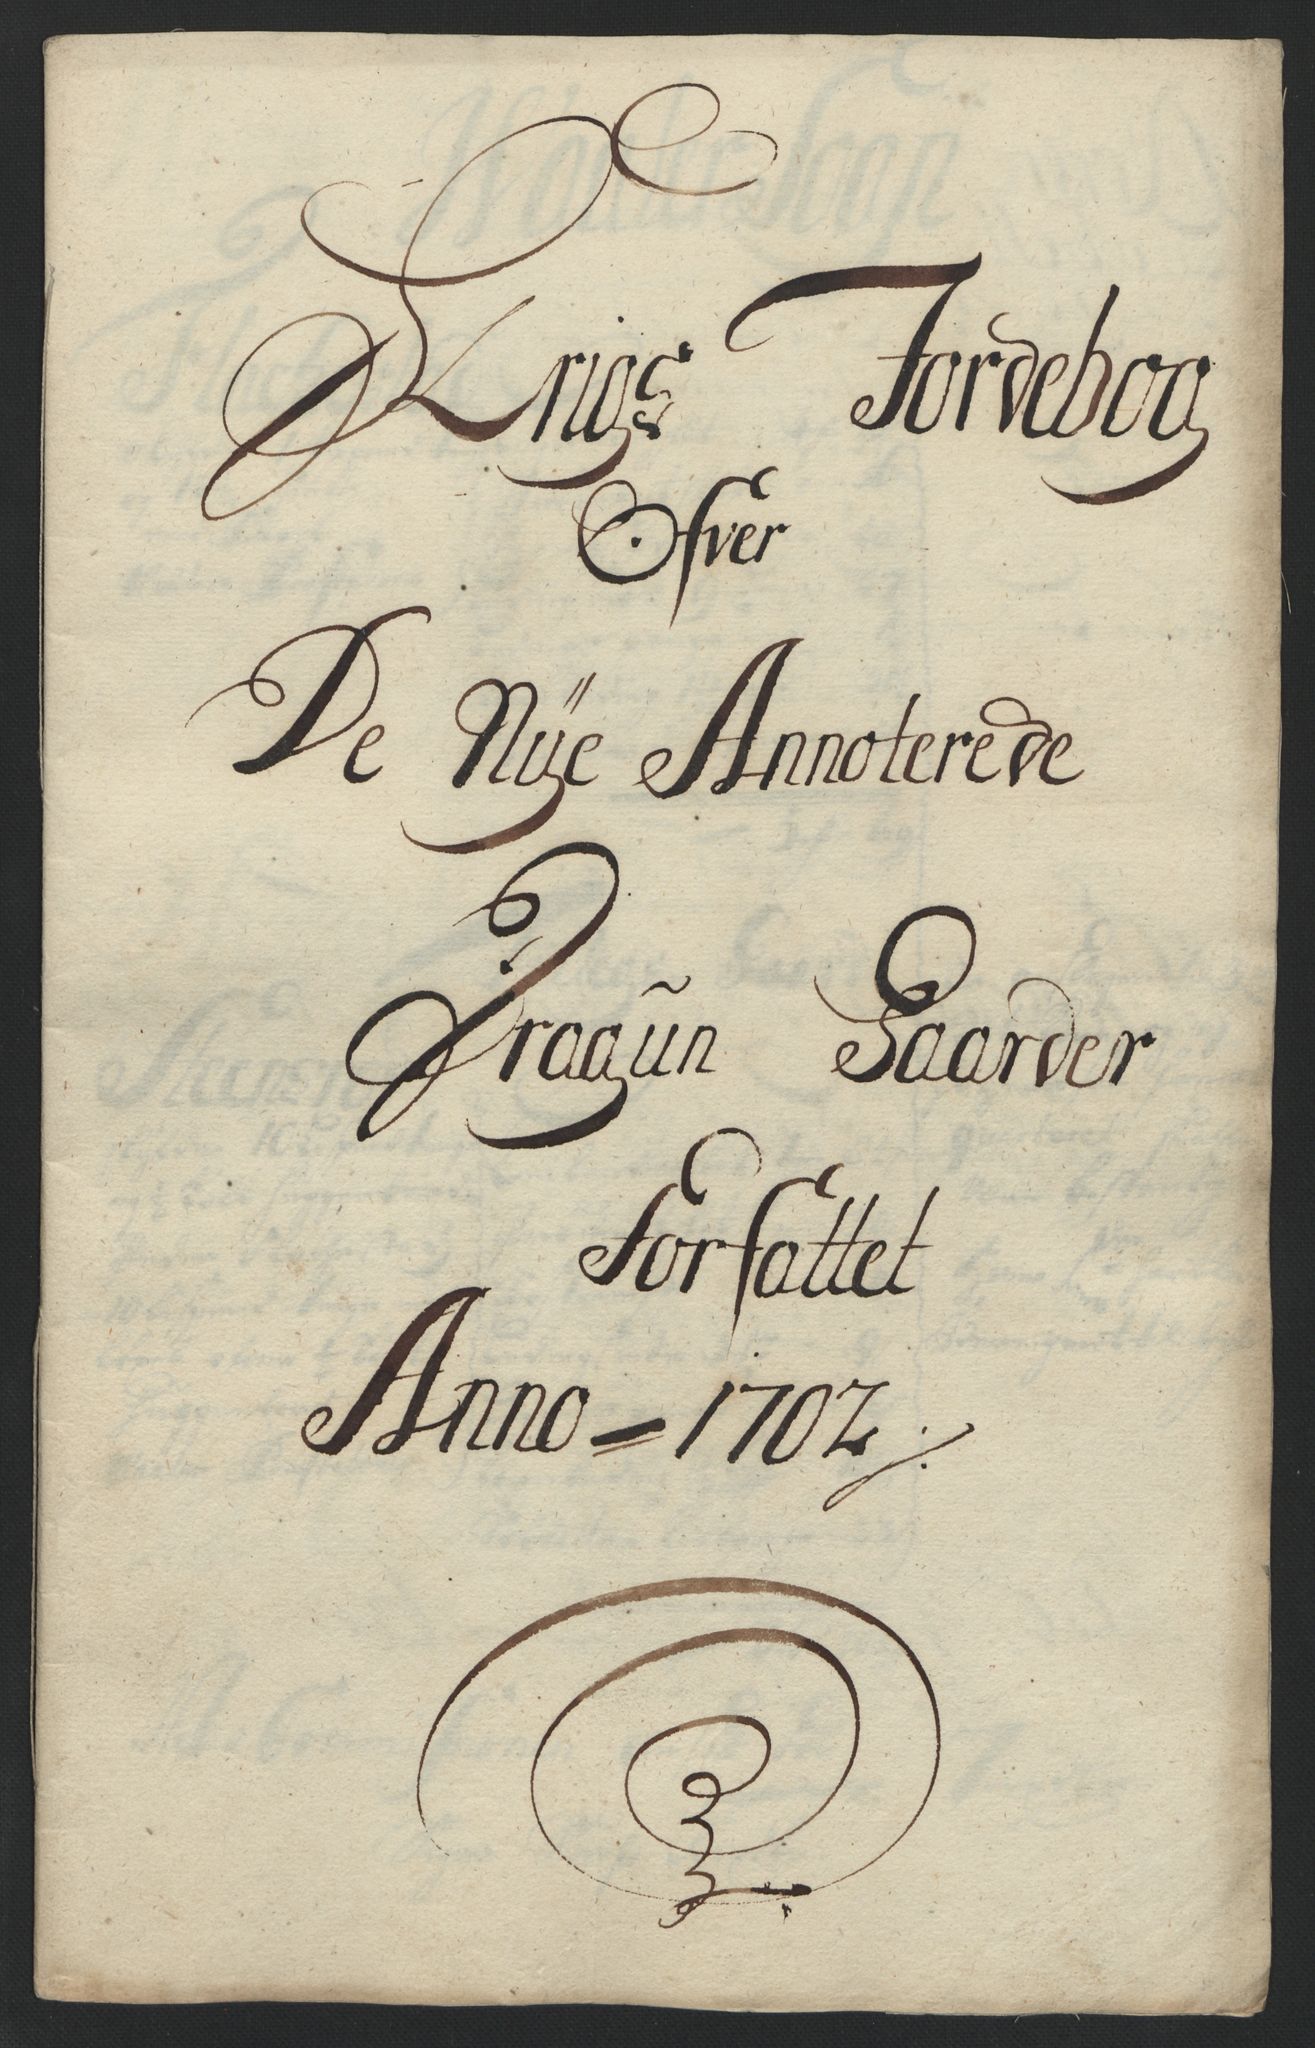 Krigs Jordebog
Ofver
De Nÿe Annoterede
Dragün Gaarder
Forfattet
Anno = 1702 /: